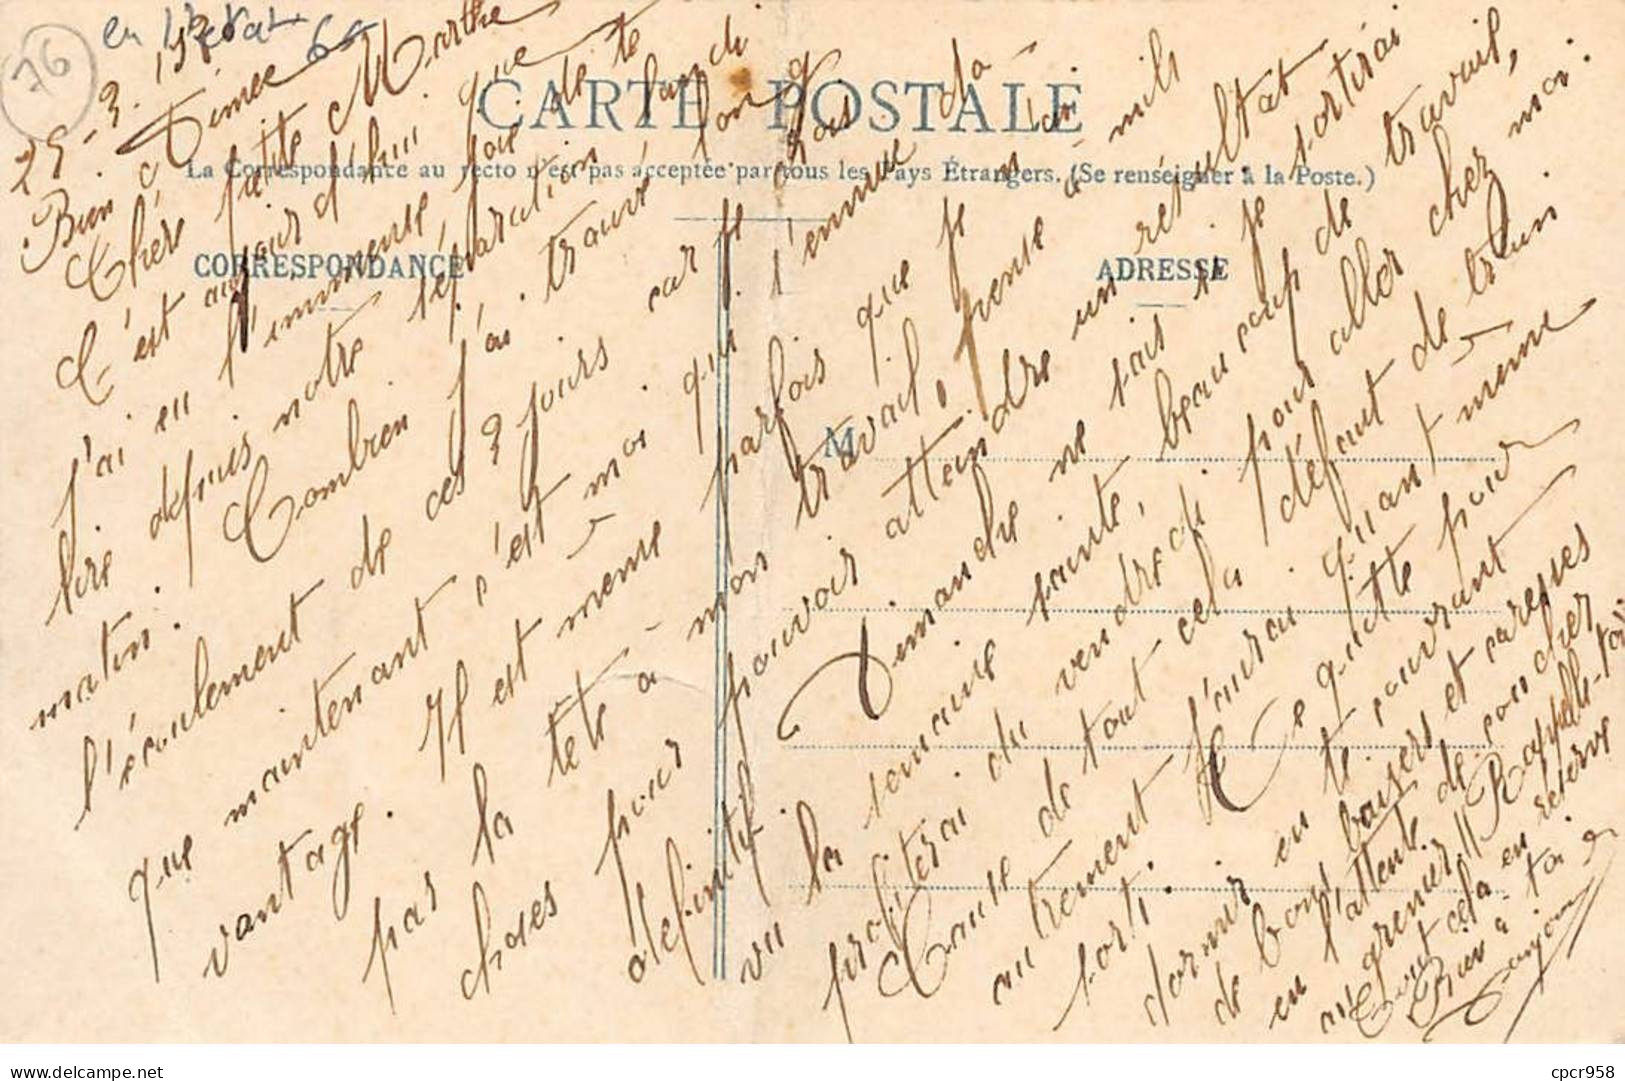 76
25-3-
CARTE POSTALE
La Correspondance au recto n'est pas acceptée par tous les Pays Étrangers. (Se renseigner à la Poste.)
CORRESPONDANCE
ADRESSE
M
Bien Aimée
Chère petite Marthe
C'est aujourd'hui que
j'ai eu l'immense joie de te
lire depuis notre séparation lundi
matin. Combien j'ai trouvé long
l'écoulement de ces 3 jours car je
que maintenant c'est moi qui l'ennui da-
vantage. Il est même parfois que je n'ai
pas la tête à mon travail, pense à mils
choses pour pouvoir atteindre un résultat
définitif. Dimanche ne sais si je sortirai
vu la semaine sainte, beaucoup de travail,
profiterai du vendredi pour aller chez moi.
Cause de tout cela défaut de train.
autrement j'aurai quant même
sorti. Ce quitte pour
dormir en te couvrant
de bons baisers et caresses
en l'attente de coucher
au grenier !! Rappelle-toi
tout cela en réserve
Bien à toi